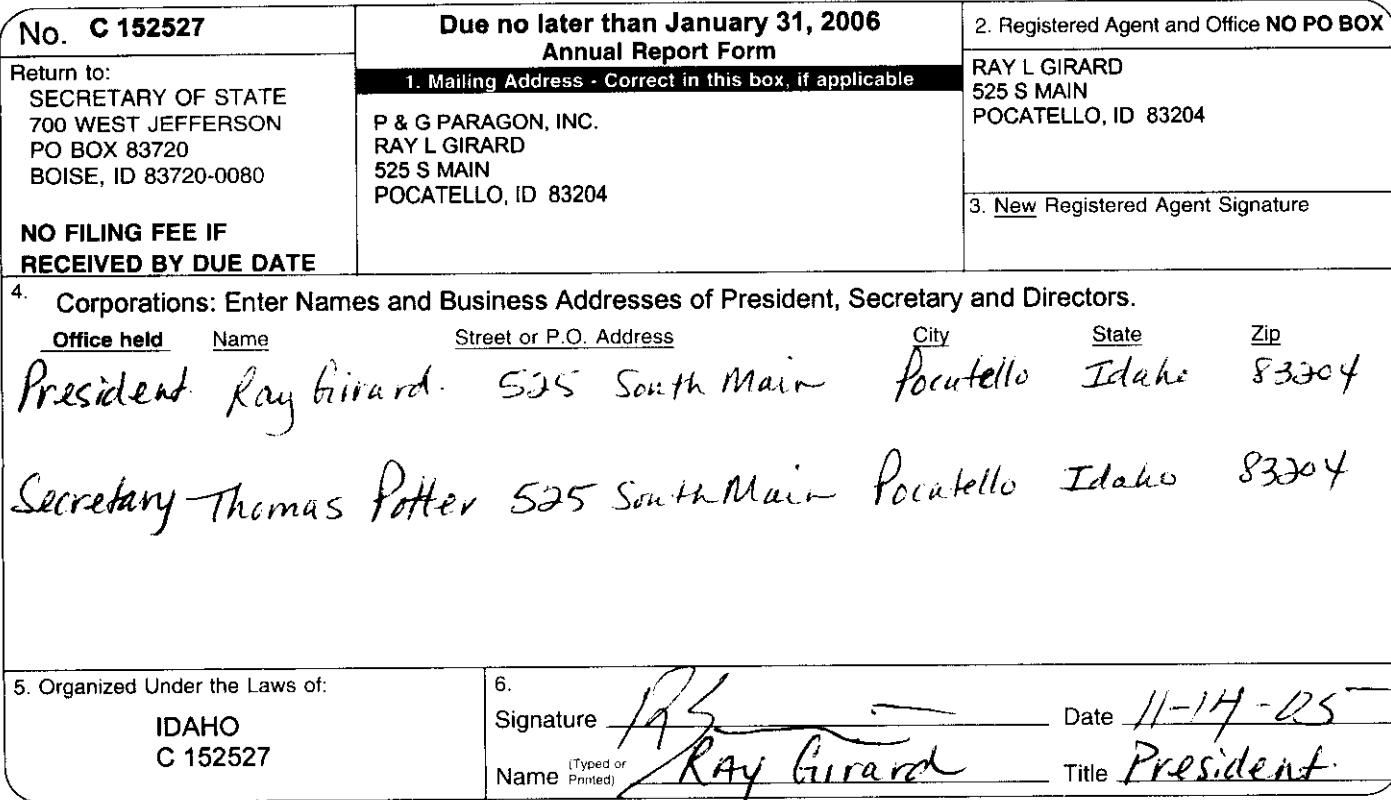 No. C 152527
Return to:
SECRETARY OF STATE
700 WEST JEFFERSON
PO BOX 83720
BOISE, ID 83720-0080
NO FILING FEE IF
RECEIVED BY DUE DATE
Due no later than January 31, 2006
Annual Report Form
1. Mailing Address - Correct in this box, if applicable
P & G PARAGON, INC.
RAY L GIRARD
525 S MAIN
POCATELLO, ID 83204
2. Registered Agent and Office NO PO BOX
RAY L GIRARD
525 S MAIN
POCATELLO, ID 83204
3. New Registered Agent Signature
4. Corporations: Enter Names and Business Addresses of President, Secretary and Directors.
Office held Name Street or P.O. Address City State Zip
President Ray Girard. 525 South Main Pocatello Idaho 83204
Secretary Thomas Potter 525 South Main Pocatello Idaho 83204
5. Organized Under the Laws of:
IDAHO
C 152527
6.
Signature Date 11-14-05
Name (Typed or Printed) Ray Girard Title President.